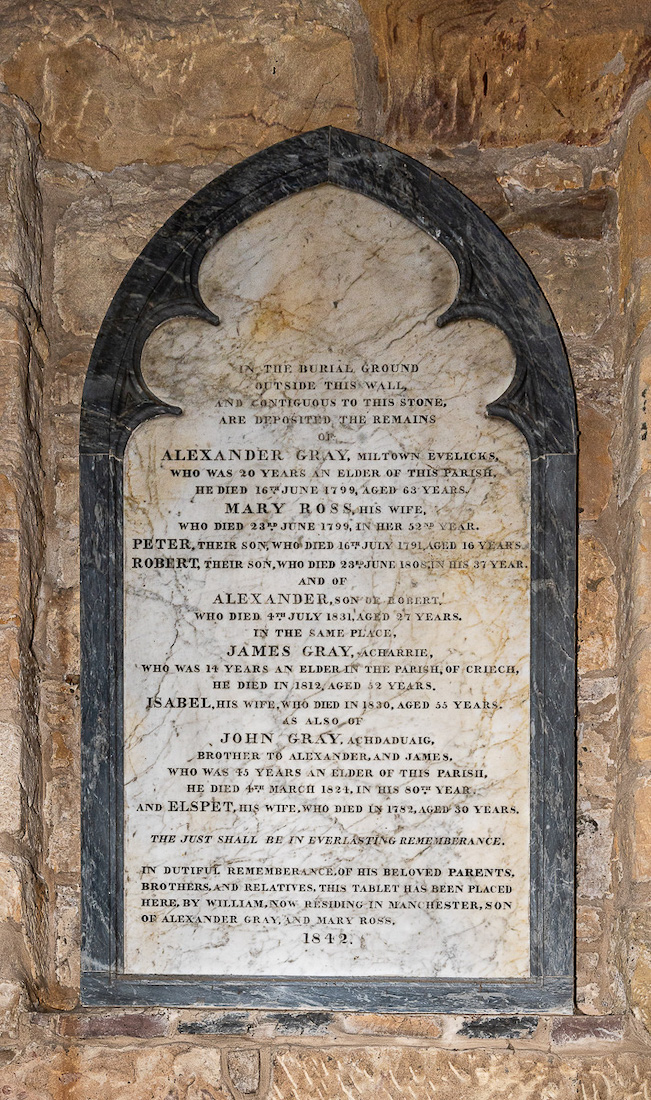 IN THE BURIAL GROUND
OUTSIDE THIS WALL,
AND CONTIGUOUS TO THIS STONE,
ARE DEPOSITED THE REMAINS
OF
ALEXANDER GRAY, MILTOWN EVELICKS,
WHO WAS 20 YEARS AN ELDER OF THIS PARISH,
HE DIED 16TH JUNE 1799, AGED 63 YEARS.
MARY ROSS, HIS WIFE,
WHO DIED 23RD JUNE 1799, IN HER 52ND YEAR.
PETER, THEIR SON, WHO DIED 16TH JULY 1791, AGED 16 YEARS.
ROBERT, THEIR SON, WHO DIED 23RD JUNE 1808, IN HIS 37 YEAR.
AND OF
ALEXANDER, SON OF ROBERT,
WHO DIED 4TH JULY 1831, AGED 27 YEARS.
IN THE SAME PLACE,
JAMES GRAY, ACHARRIE,
WHO WAS 14 YEARS AN ELDER IN THE PARISH, OF CRIECH,
HE DIED IN 1812, AGED 52 YEARS.
ISABEL, HIS WIFE, WHO DIED IN 1830, AGED 55 YEARS.
AS ALSO OF
JOHN GRAY, ACHDADUAIG,
BROTHER TO ALEXANDER, AND JAMES,
WHO WAS 45 YEARS AN ELDER OF THIS PARISH,
HE DIED 4TH MARCH 1824, IN HIS 80TH YEAR,
AND ELSPET, HIS WIFE, WHO DIED IN 1782, AGED 30 YEARS.
THE JUST SHALL BE IN EVERLASTING REMEMBERANCE.
IN DUTIFUL REMEMBERANCE, OF HIS BELOVED PARENTS,
BROTHERS, AND RELATIVES, THIS TABLET HAS BEEN PLACED
HERE, BY WILLIAM, NOW RESIDING IN MANCHESTER, SON
OF ALEXANDER GRAY, AND MARY ROSS.
1842.